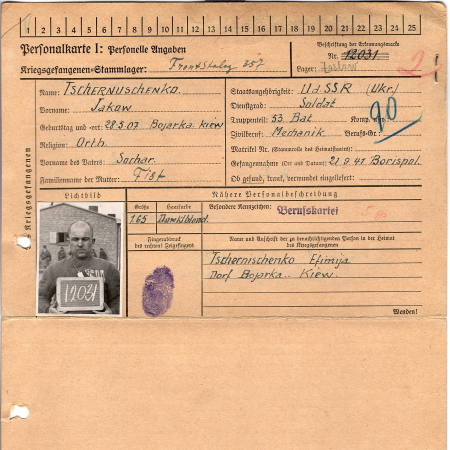 1 2 3 4 5 6 7 8 9 10 11 12 13 14 15 16 17 18 19 20 21 22 23 24 25
Personalkarte I: Personelle Angaben
Kriegsgefangenen-Stammlager: Frontstalag 357
Beschriftung der Erkennungsmarke
Nr. 12031
Lager:
2
Kriegsgefangenen
Name: TSCHERNUSCHENKO
Vorname: Jakow
Geburtstag und -ort: 28.5.07 Bojarka. Kiew
Religion: Orth.
Vorname des Vaters: Sachar.
Familienname der Mutter:
Staatsangehörigkeit: UdSSR (Ukr.)
Dienstgrad: Soldat
Truppenteil: 53. Bat Komp.
Zivilberuf: Mechanik Berufs-Gr.:
Matrikel Nr. (Stammrolle des Heimatstaates):
Gefangennahme (Ort und Datum): 21.9.41 Borispol.
Ob gesund, krank, verwundet eingeliefert:
Lichtbild
12031
Nähere Personalbeschreibung
Größe
165
Haarfarbe
Dunklblond.
Besondere Kennzeichen:
Berufskartei
Fingerabdruck
des rechten! Zeigefingers!
Name und Anschrift der zu benachrichtigenden Person in der Heimat
des Kriegsgefangenen
Tschernischenko Efimija
Dorf Bojarka. Kiew.
Wenden!